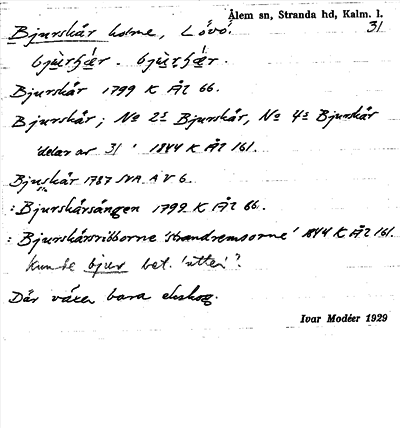 Ålem sn, Stranda hd, Kalm. l.
Bjurskär holme, Lövö. 31
Bjurskär 1799 K Ål 66.
Bjurskär; No 2= Bjurskär, No 4= Bjurskär
'delar av 31' 1844 K Ål 161.
Bjuskär 1787 SVA A V 6.
: Bjurskärsängen 1799 K Ål 66.
: Bjurskärsribborne 'strandremsorne' 1844 K Ål 161.
Kunde bjur bet. 'utter'?
Där växer bara ekskog.
Ivar Modéer 1929